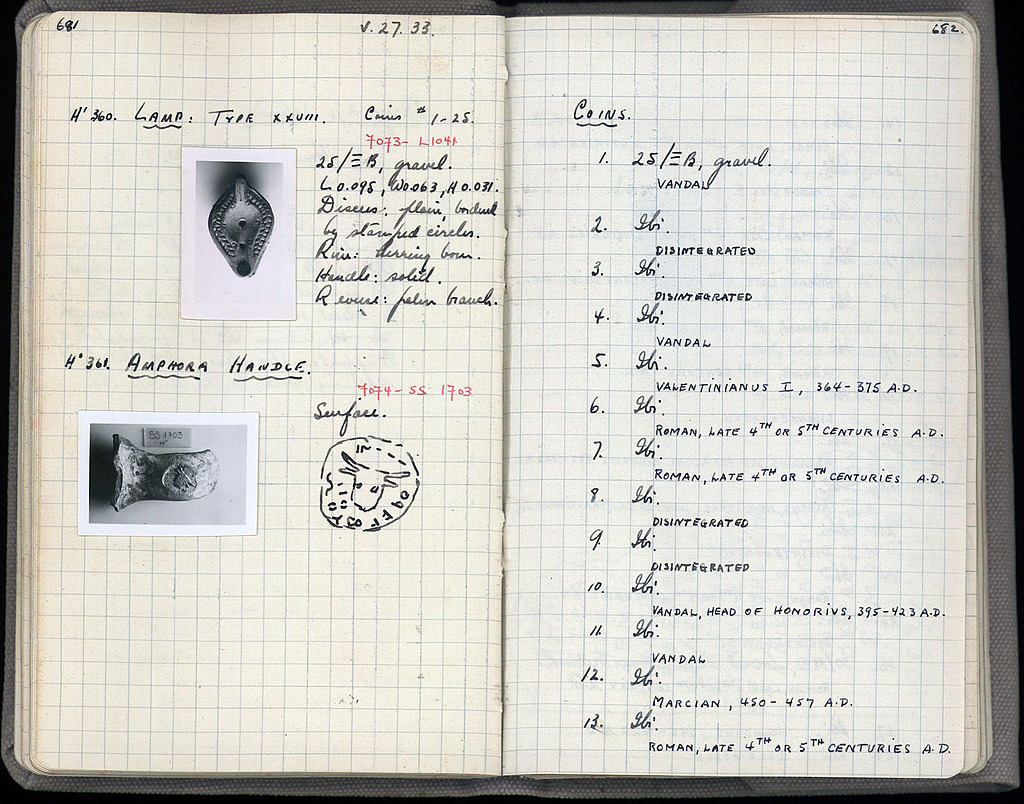 681
V. 27. 33.
H' 360. LAMP: TYPE XXVIII. Coins # 1-25.
7073- L1041
25/ΞB, gravel.
L 0.095, W 0.063, H 0.031.
Discus: plain, bordered
by stamped circles.
Rim: herring bone.
Handle: solid.
Reverse: palm branch.
H' 361. AMPHORA HANDLE.
7074- SS 1703
Surface.
SS 1703
H'
682.
COINS.
1. 25/ΞB, gravel.
VANDAL
2. Ibi.
DISINTEGRATED
3. Ibi.
DISINTEGRATED
4. Ibi.
VANDAL
5. Ibi.
VALENTINIANUS I, 364-375 A.D.
6. Ibi.
ROMAN, LATE 4TH OR 5TH CENTURIES A.D.
7. Ibi.
ROMAN, LATE 4TH OR 5TH CENTURIES A.D.
8. Ibi.
DISINTEGRATED
9. Ibi.
DISINTEGRATED
10. Ibi.
VANDAL, HEAD OF HONORIUS, 395-423 A.D.
11. Ibi.
VANDAL
12. Ibi.
MARCIAN, 450-457 A.D.
13. Ibi.
ROMAN, LATE 4TH OR 5TH CENTURIES A.D.